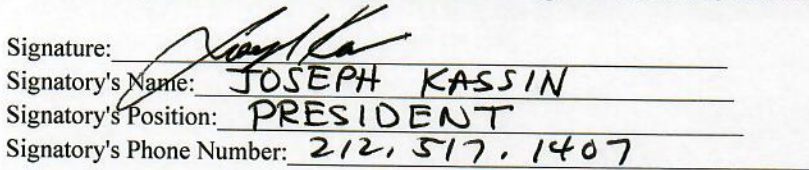 Signature:
Signatory's Name: JOSEPH KASSIN
Signatory's Position: PRESIDENT
Signatory's Phone Number: 212. 517. 1407